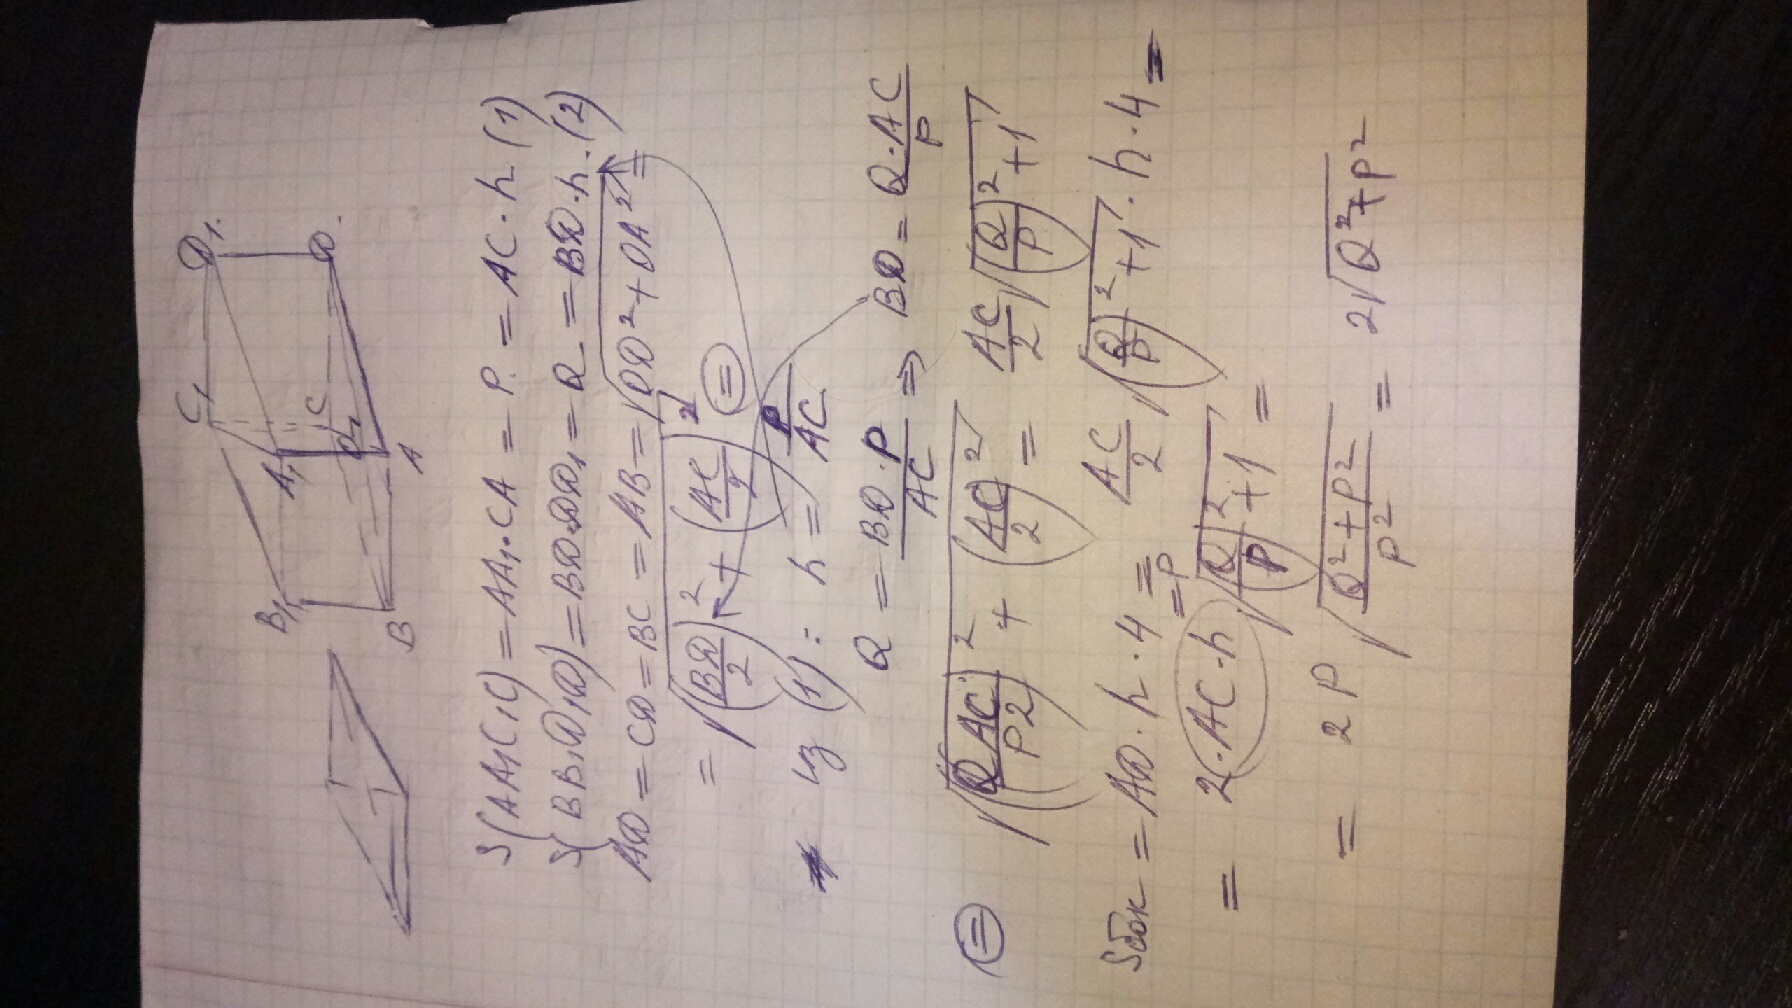 C₁ D₁.
B₁ A₁ C D.
O
B A
S(AA₁C₁C) = AA₁·CA = P = AC·h (1)
S(BB₁D₁D) = BD·DD₁ = Q = BD·h. (2)
AD = CD = BC = AB = √(OD² + OA²) =
= √((BD/2)² + (AC/2)²) ⊜
из (1): h = P/AC
Q = BD·P/AC ⇒ BD = Q·AC/P
⊜ √((Q AC/P2)² + (AC/2)²) = AC/2 √((Q/P)² + 1)
Sбок = AD·h·4 = AC/2 √((Q/P)² + 1)·h·4 =
= 2·AC·h √((Q/P)² + 1) =
=P
= 2P √((Q² + P²)/P²) = 2√(Q² + P²)